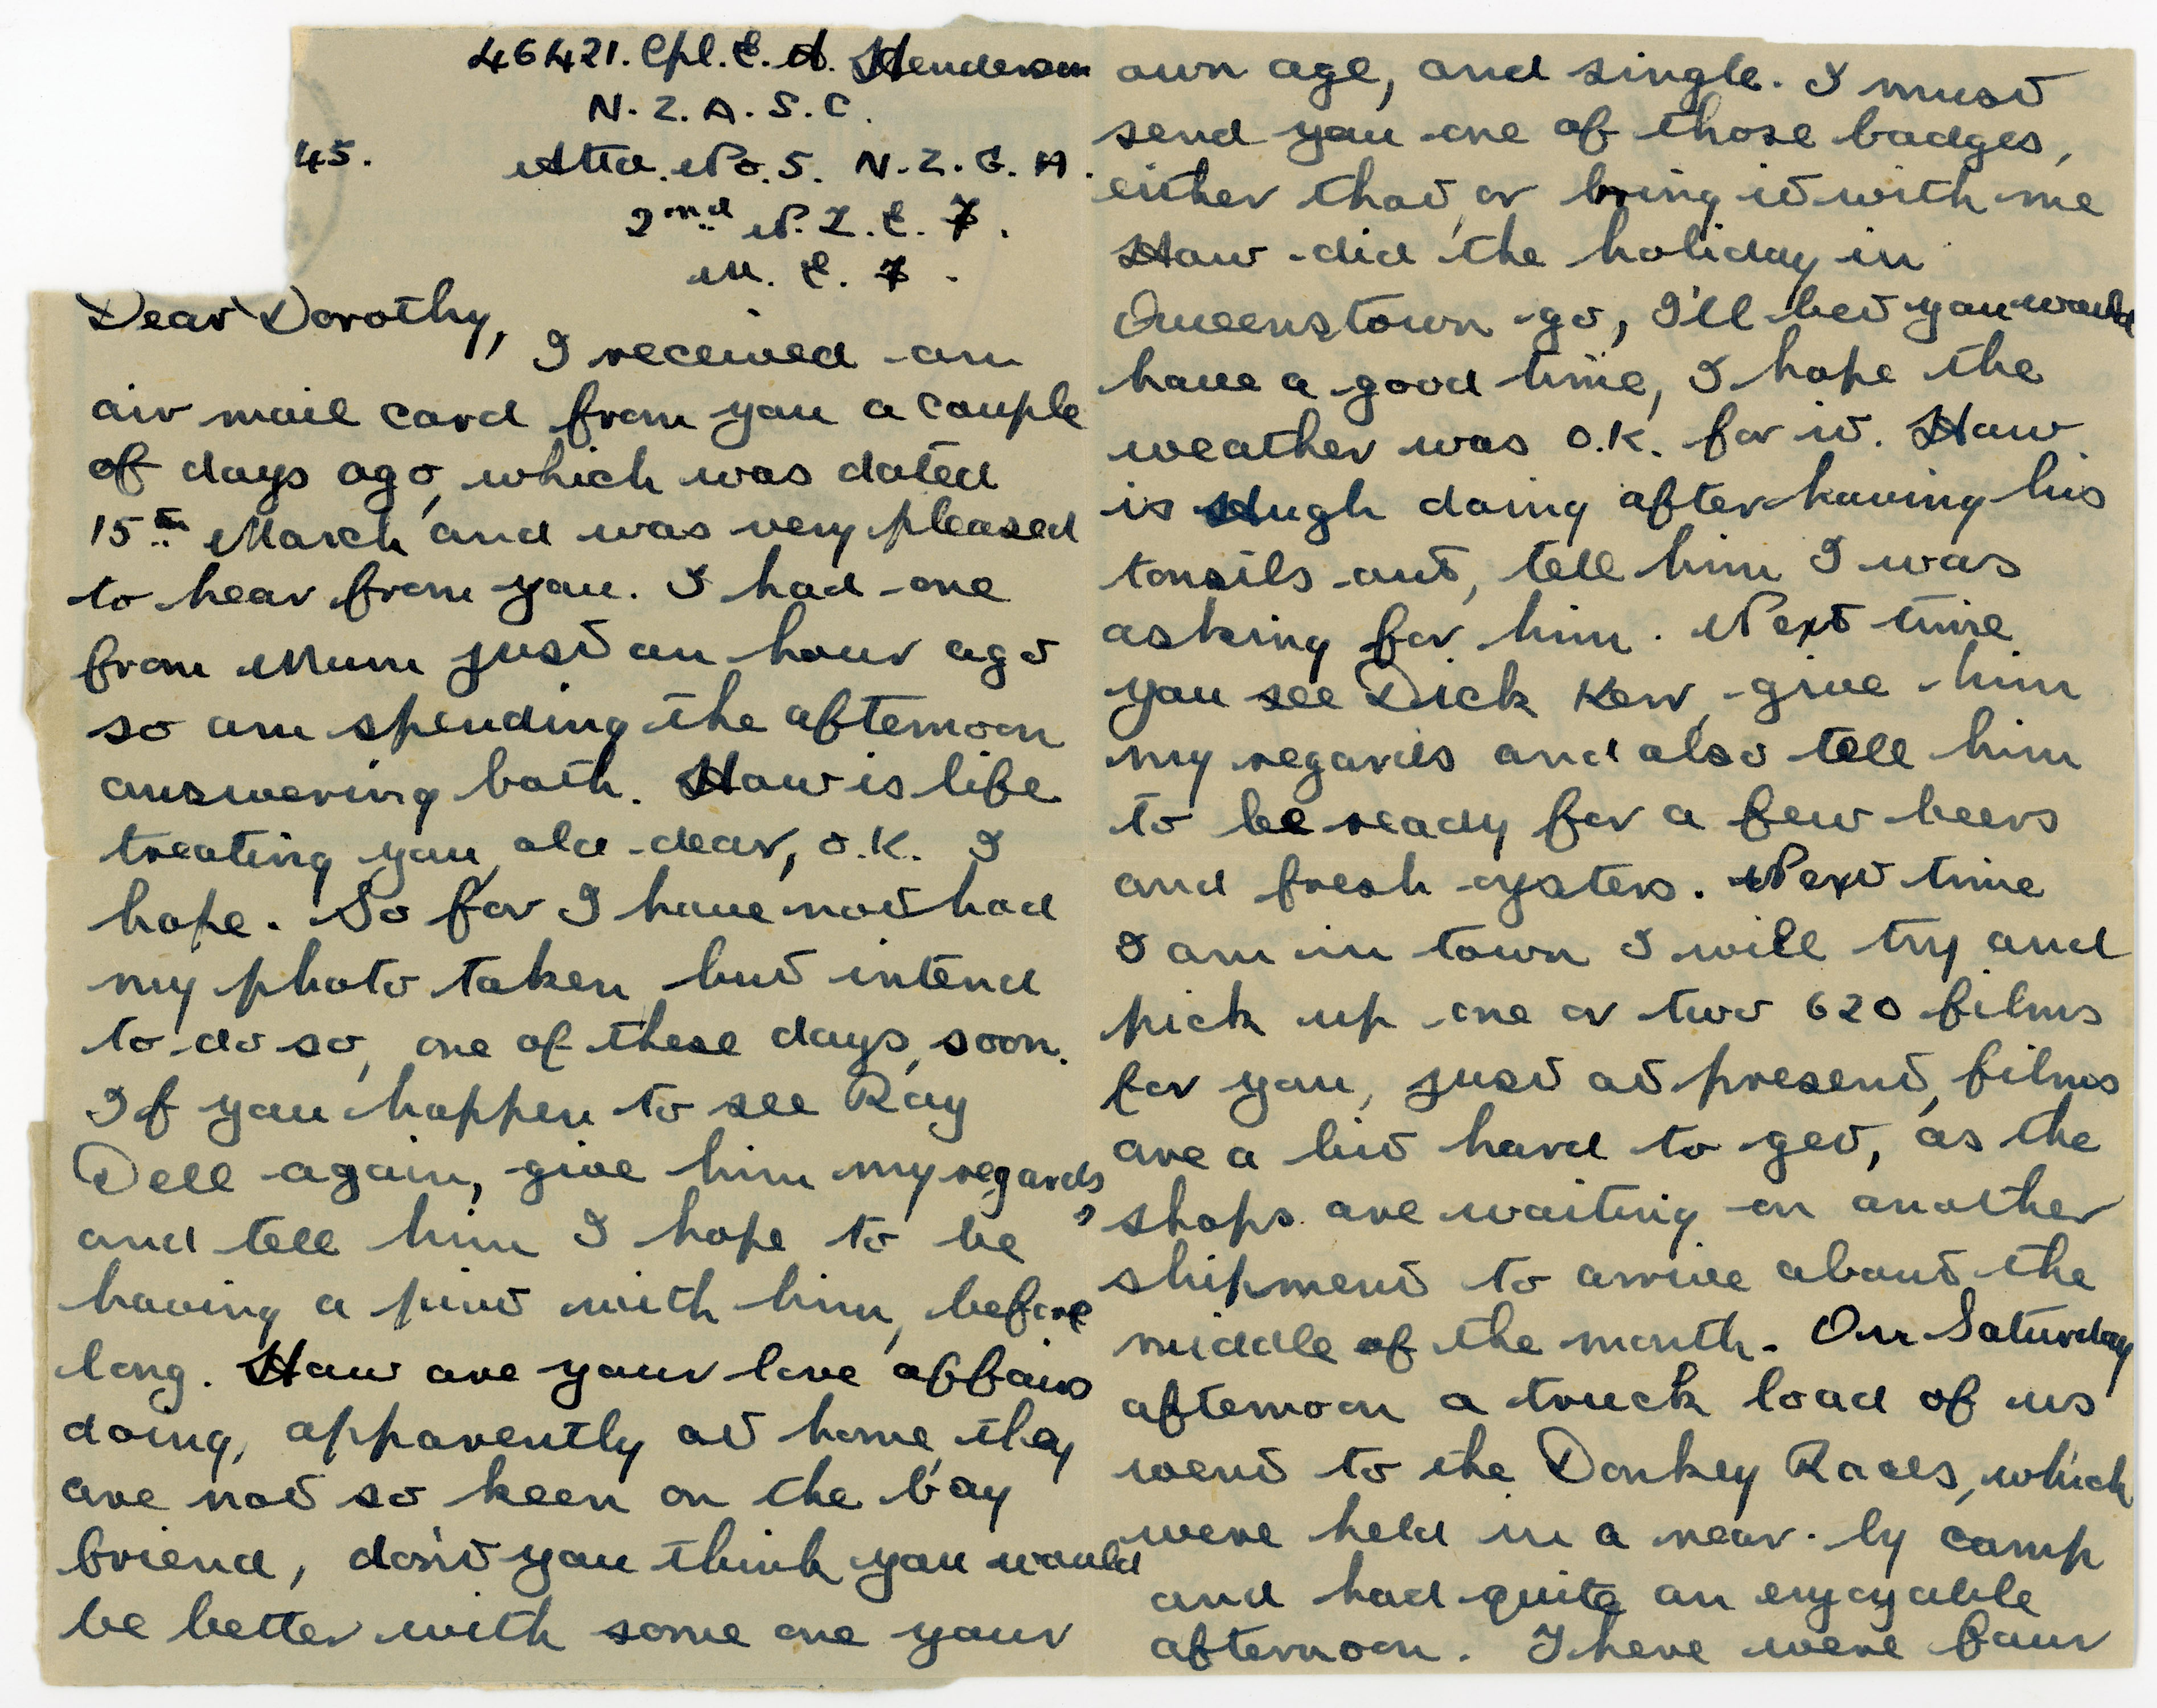 46421. Cpl. E. A. Henderson
N. Z. A. S. C.
45. Attd. No. 5. N. Z. G. H.
2nd N. Z. E. F.
M. E. F.
Dear Dorothy,
I received an
air mail card from you a couple
of days ago, which was dated
15th March and was very pleased
to hear from you. I had one
from Mum just an hour ago
so am spending the afternoon
answering both. How is life
treating you, old dear, O.K. I
hope. So far I have not had
my photo taken but intend
to do so, one of these days, soon.
If you happen to see Ray
Dell again, give him my regards,
and tell him I hope to be
having a pint with him, before
long. How are your love affairs
doing, apparently at home, they
are not so keen on the boy
friend, don't you think you would
be better with some one your
own age, and single. I must
send you one of those badges,
either that, or bring it with me
How did the holiday in
Queenstown go, I'll bet you would
have a good time, I hope the
weather was O.K. for it. How
is Hugh doing after having his
tonsils out, tell him I was
asking for him. Next time
you see Dick Kerr, give him
my regards and also tell him
to be ready for a few beers
and fresh oysters. Next time
I am in town I will try and
pick up one or two 620 films
for you, just at present, films
are a bit hard to get, as the
shops are waiting on another
shipment to arrive about the
middle of the month. On Saturday
afternoon a truck load of us
went to the Donkey Races, which
were held in a near-by camp
and had quite an enjoyable
afternoon. There were four